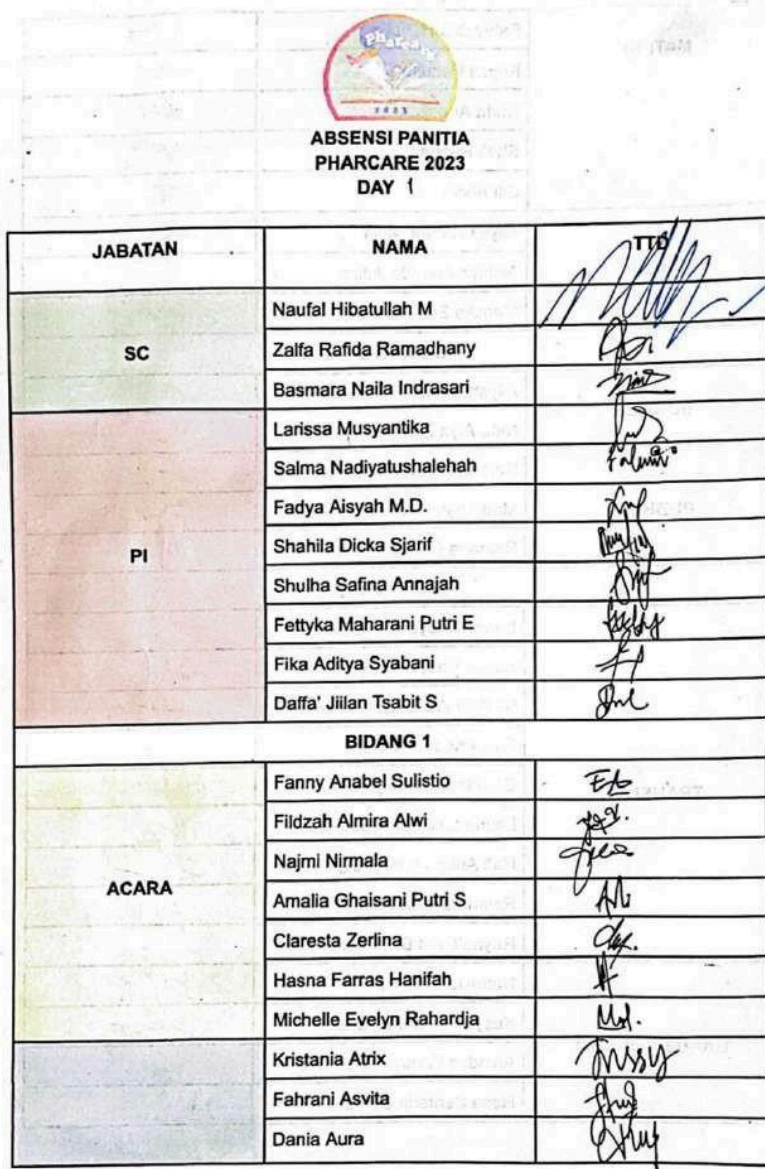 Pharcare
2023
ABSENSI PANITIA
PHARCARE 2023
DAY 1
JABATAN NAMA TTD
SC
Naufal Hibatullah M
Zalfa Rafida Ramadhany
Basmara Naila Indrasari
PI
Larissa Musyantika
Salma Nadiyatushalehah
Fadya Aisyah M.D.
Shahila Dicka Sjarif
Shulha Safina Annajah
Fettyka Maharani Putri E
Fika Aditya Syabani
Daffa' Jiilan Tsabit S
BIDANG 1
ACARA
Fanny Anabel Sulistio
Fildzah Almira Alwi
Najmi Nirmala
Amalia Ghaisani Putri S
Claresta Zerlina
Hasna Farras Hanifah
Michelle Evelyn Rahardja
Kristania Atrix
Fahrani Asvita
Dania Aura